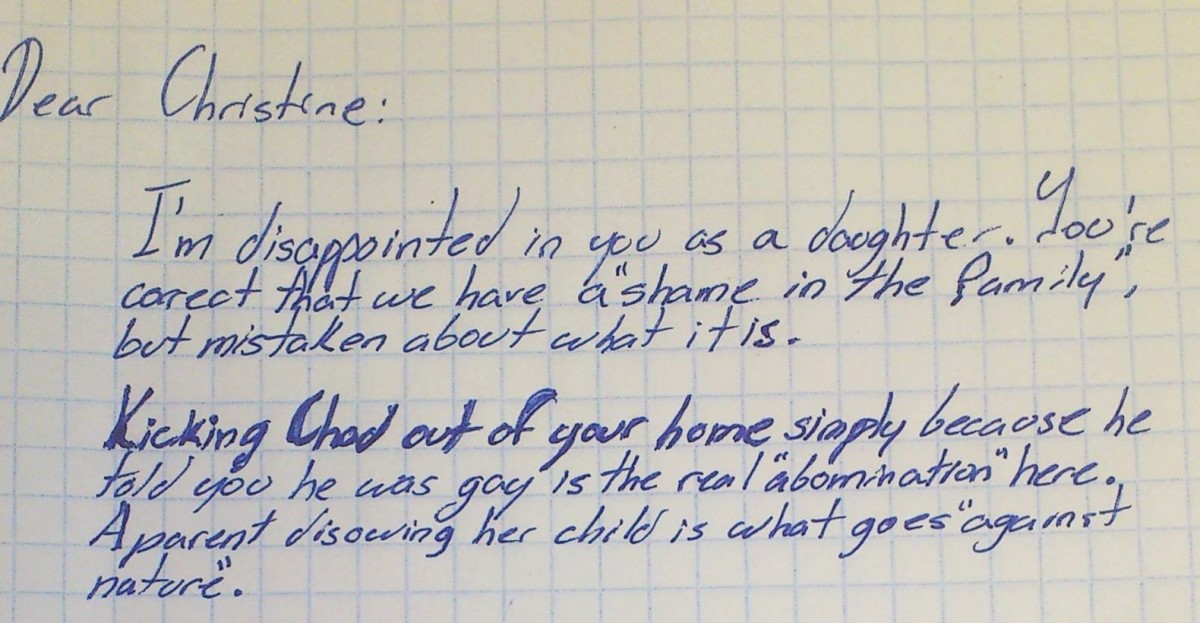 Dear Christine:
I'm disappointed in you as a daughter. You're
correct that we have a "shame in the family",
but mistaken about what it is.
Kicking Chad out of your home simply because he
told you he was gay is the real "abomination" here.
A parent disowing her child is what goes "against
nature".